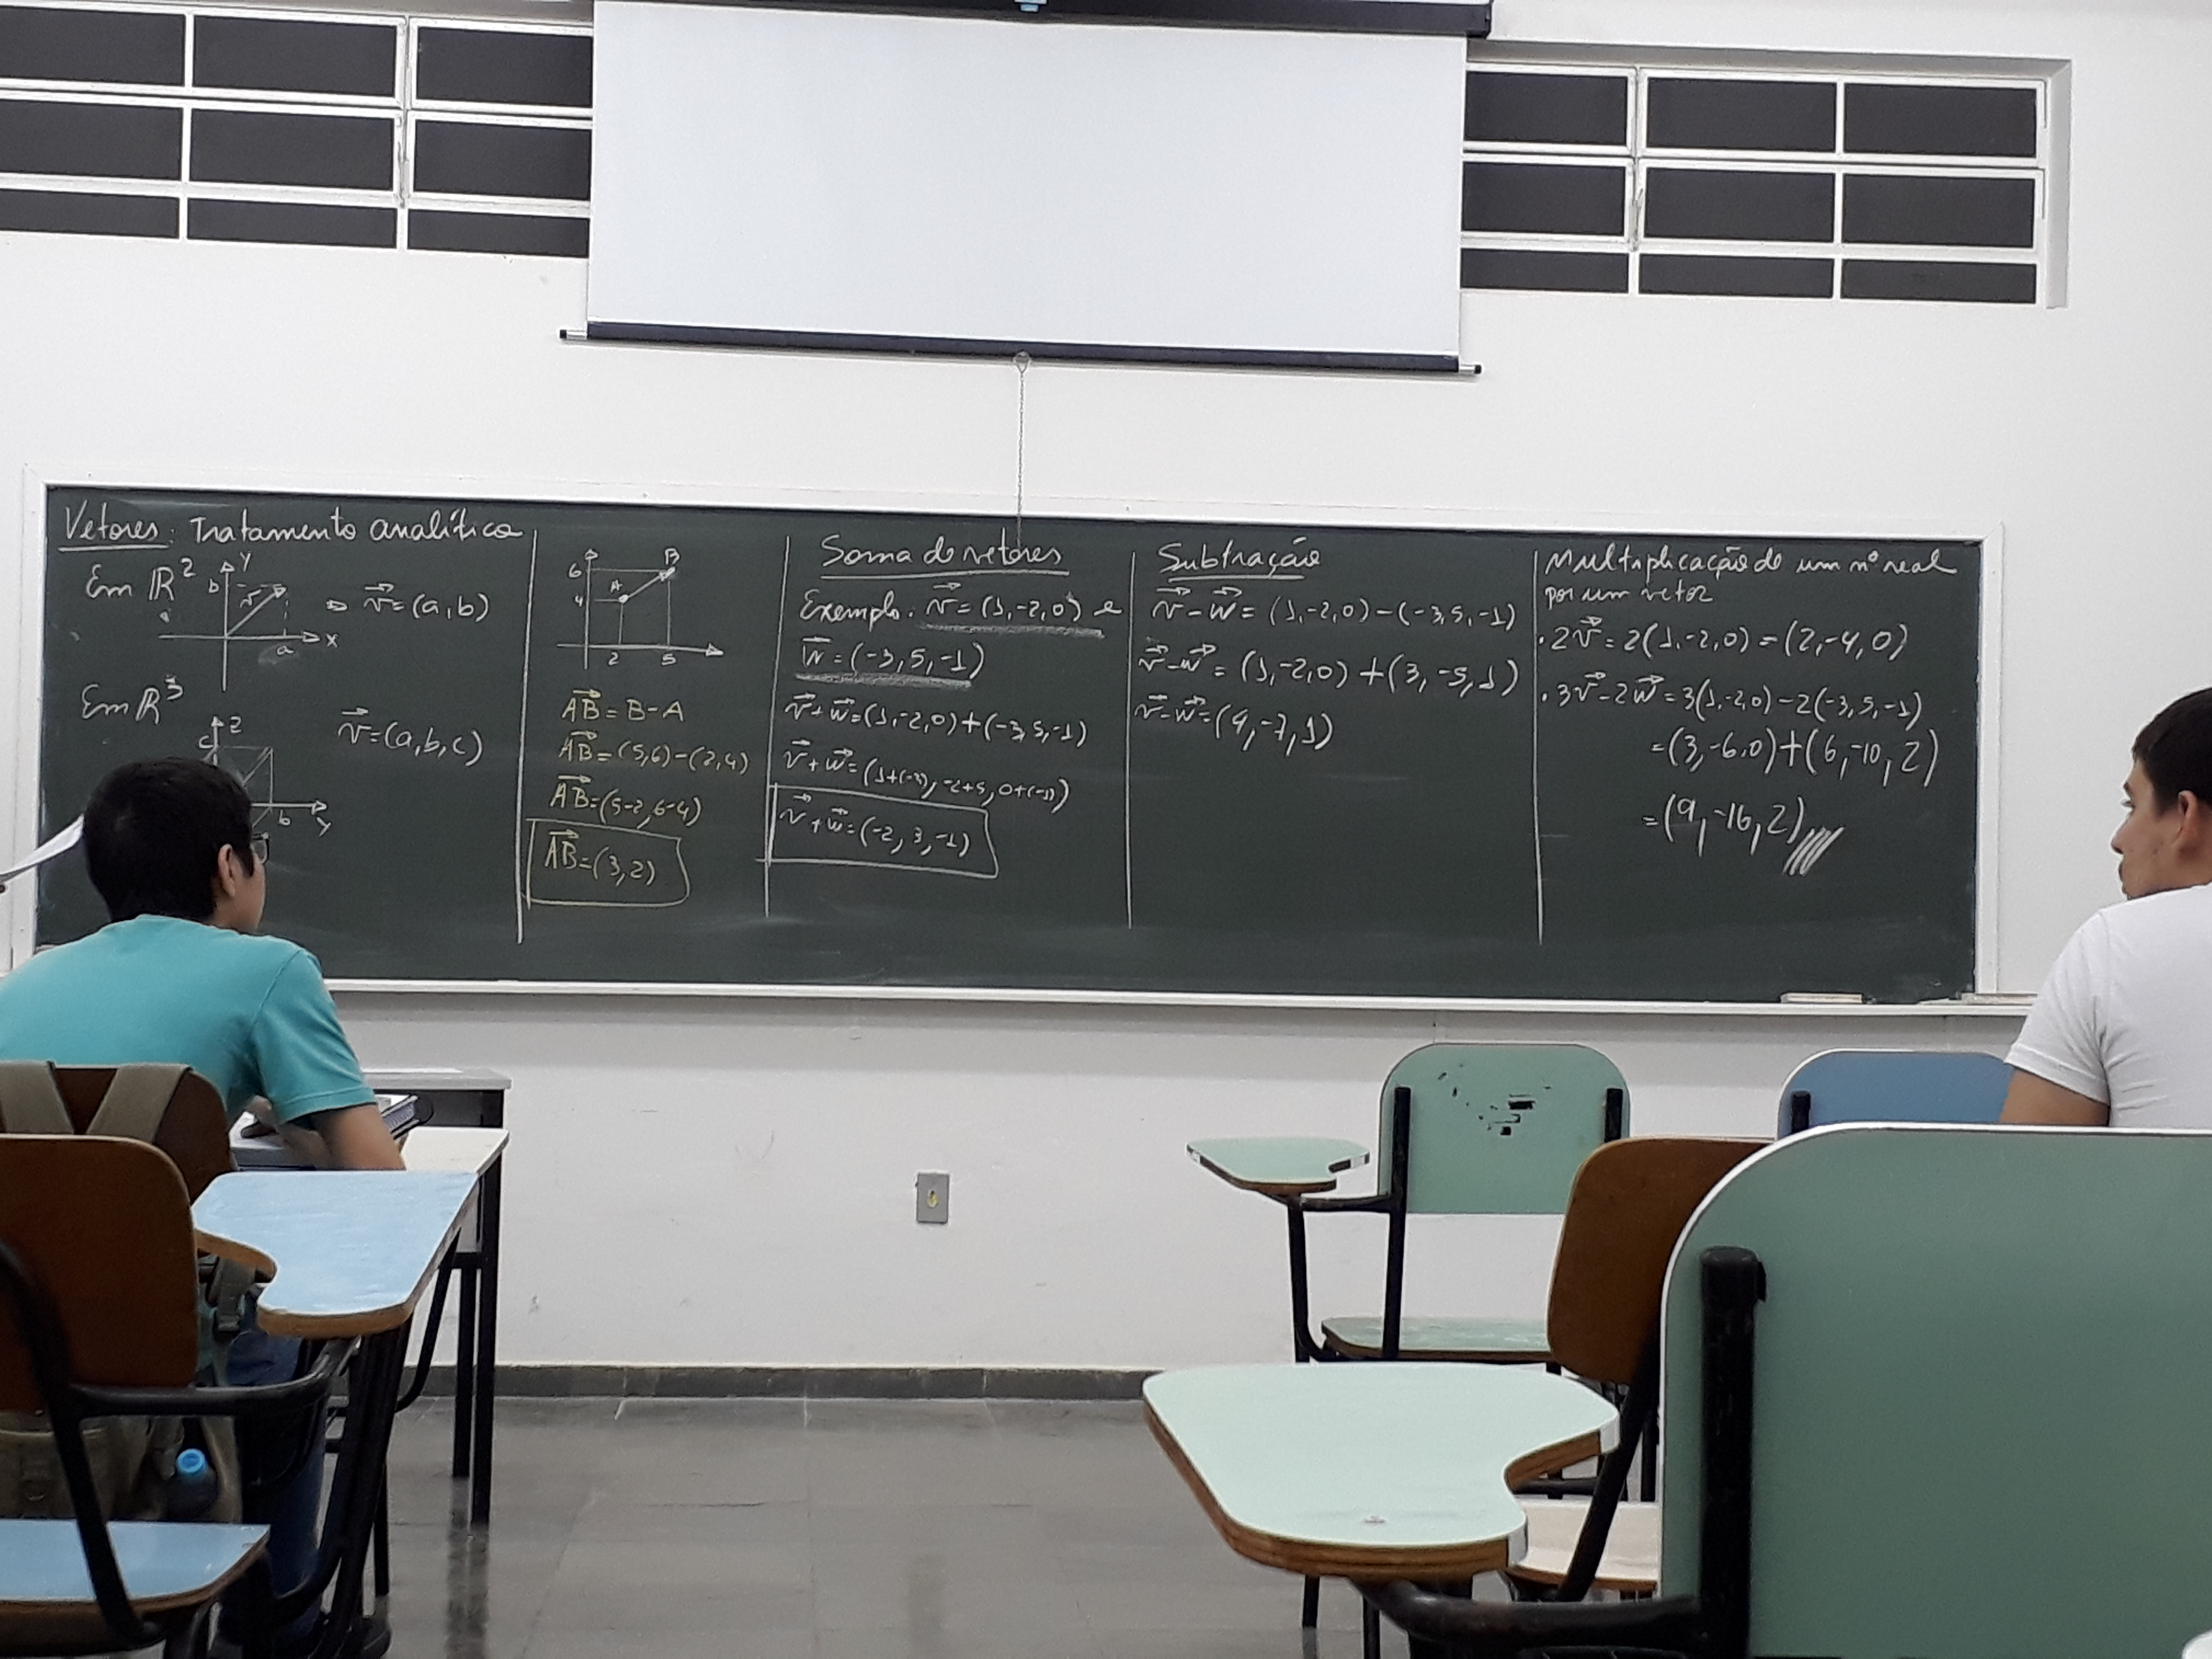 Vetores: Tratamento analítico
Em ℝ²
y
b
v⃗
a
x
⇨ v⃗=(a,b)
Em ℝ³
z
c
b
y
v⃗=(a,b,c)
6
4
A
B
2
5
A͞B⃗=B-A
A͞B⃗=(5,6)-(2,4)
A͞B⃗=(5-2,6-4)
A͞B⃗=(3,2)
Soma de vetores
Exemplo. v⃗=(1,-2,0) e
w⃗=(-3,5,-1)
v⃗+w⃗=(1,-2,0)+(-3,5,-1)
v⃗+w⃗=(1+(-3),-2+5,0+(-1))
v⃗+w⃗=(-2,3,-1)
Subtração
v⃗-w⃗=(1,-2,0)-(-3,5,-1)
v⃗-w⃗=(1,-2,0)+(3,-5,1)
v⃗-w⃗=(4,-7,1)
Multiplicação de um nº real
por um vetor
.2v⃗=2(1,-2,0)=(2,-4,0)
.3v⃗-2w⃗=3(1,-2,0)-2(-3,5,-1)
=(3,-6,0)+(6,-10,2)
=(9,-16,2)